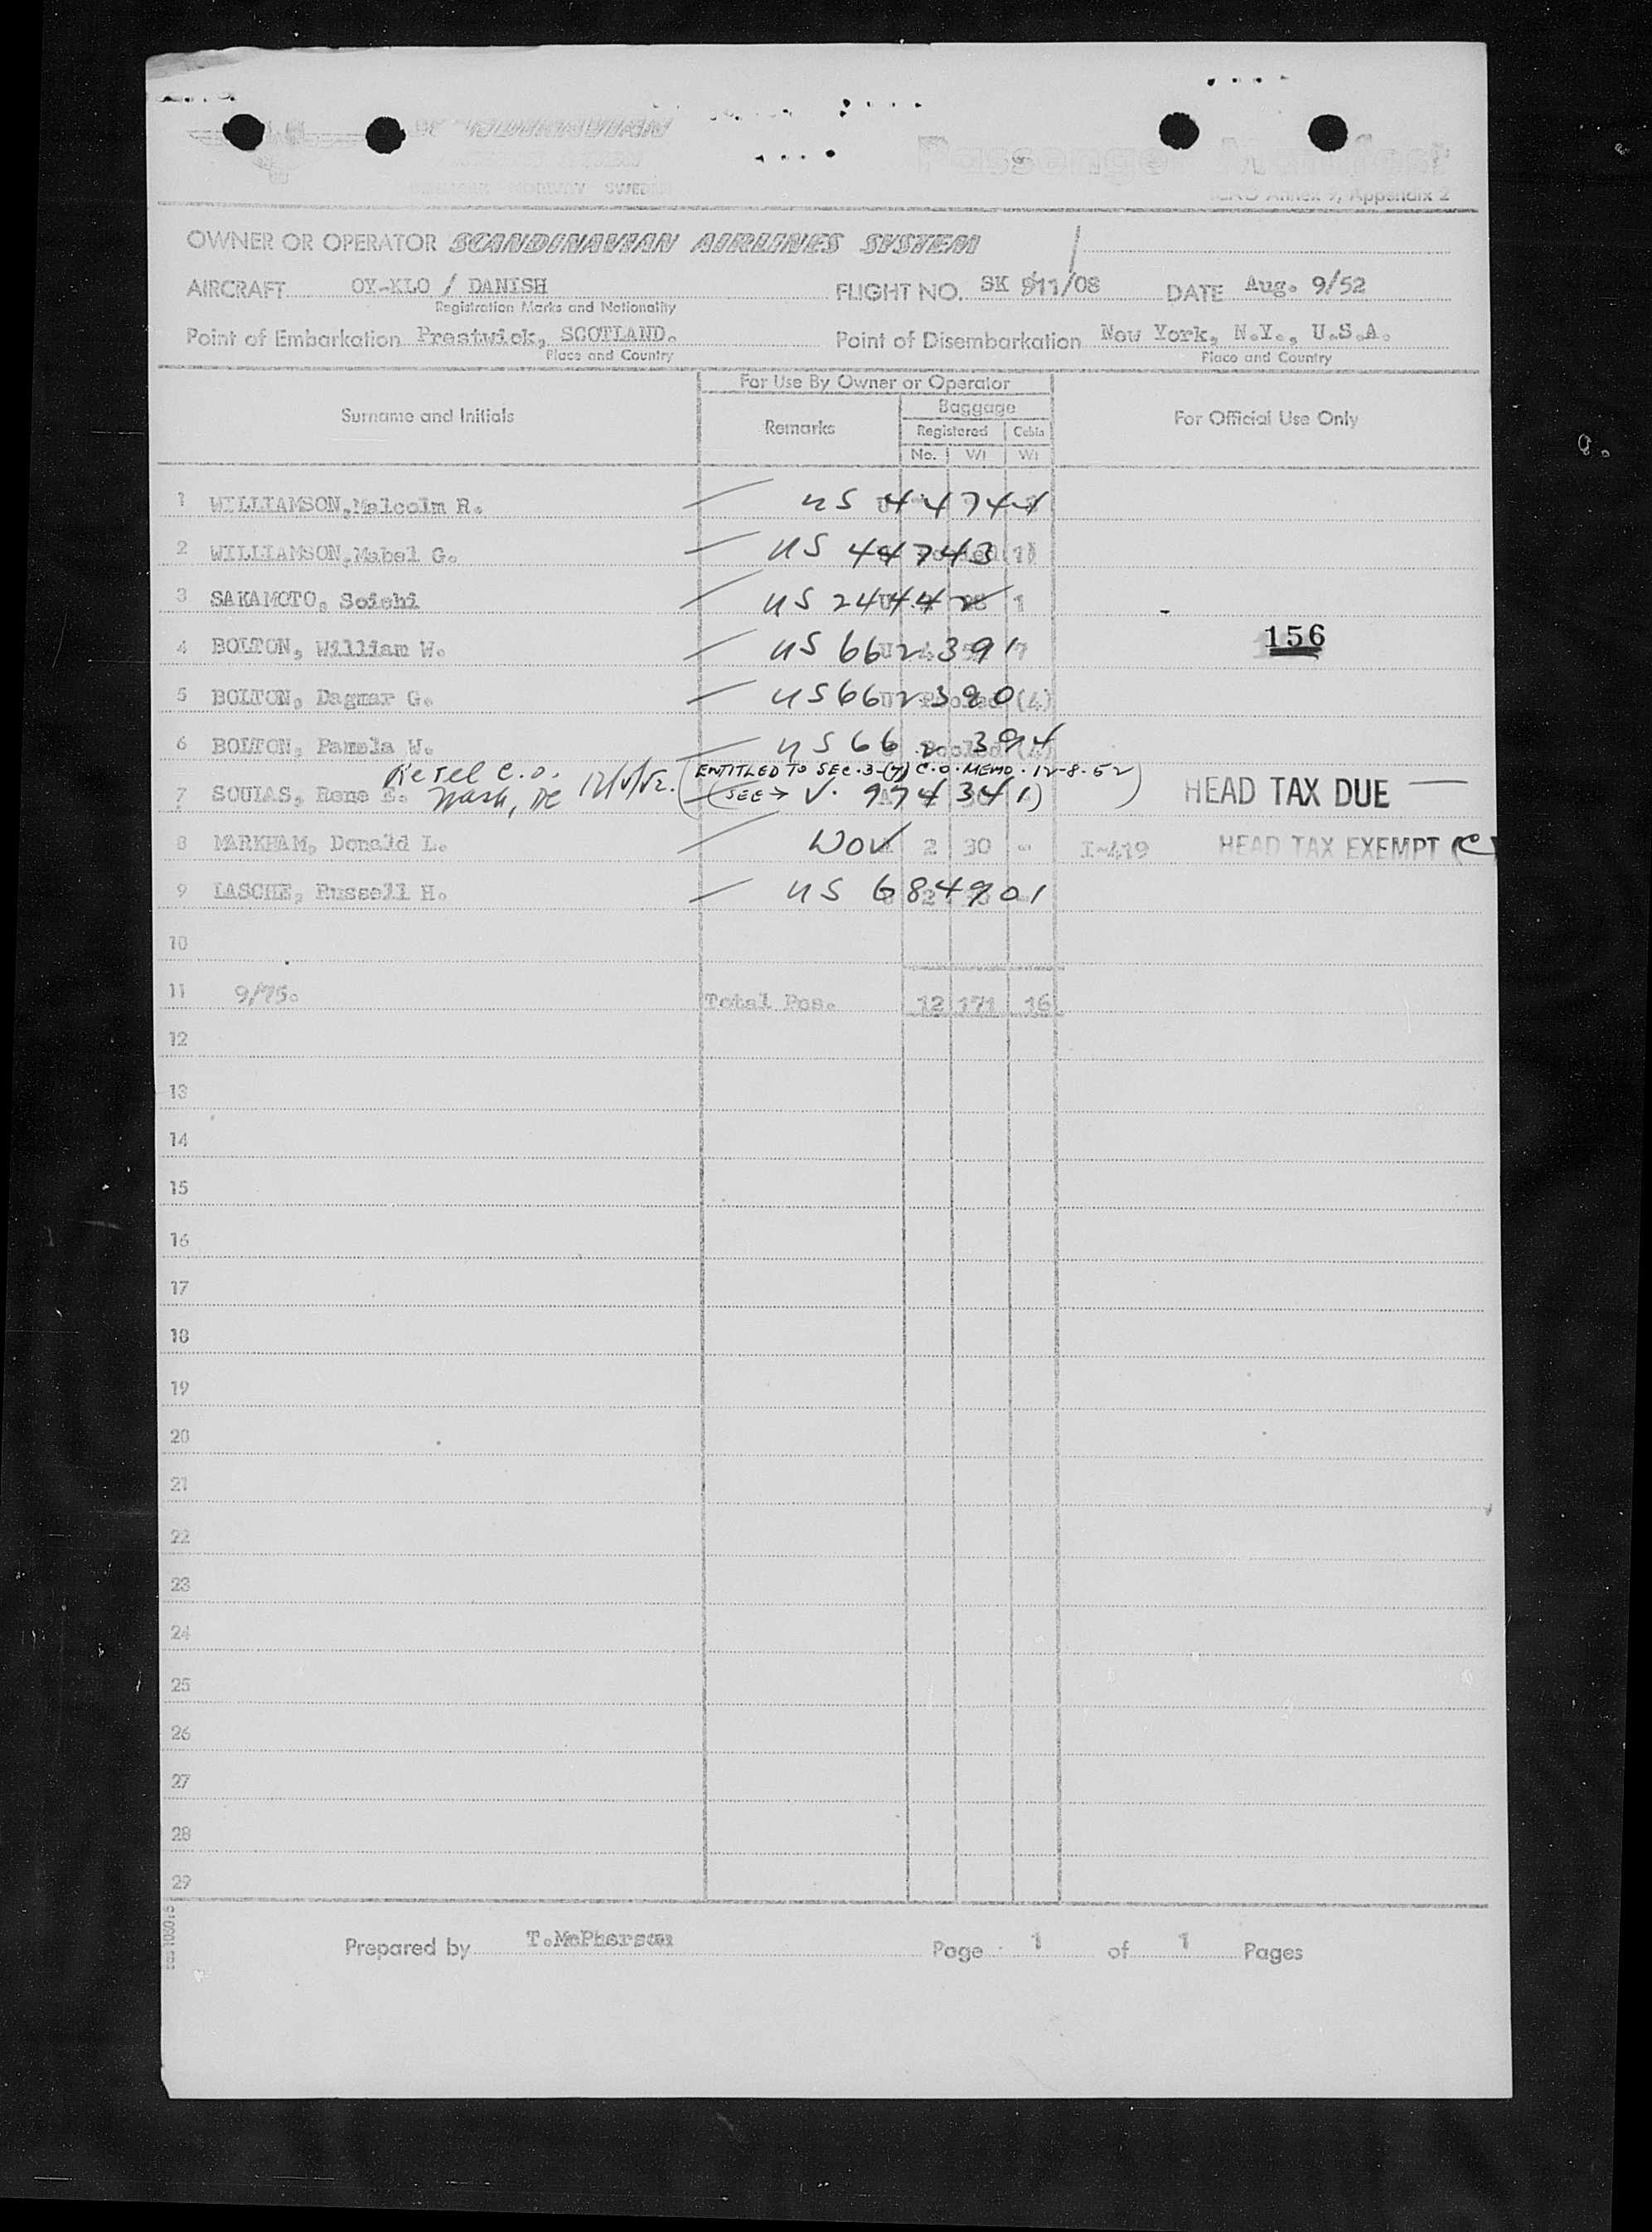 SCANDINAVIAN
NORWAY SWEDEN
Passenger Manifest
ICAO Annex 9, Appendix 2
OWNER OR OPERATOR SCANDINAVIAN AIRLINES SYSTEM
AIRCRAFT OY-KLO / DANISH FLIGHT NO. SK 911/08 DATE Aug. 9/52
Registration Marks and Nationality
Point of Embarkation Prestwick, SCOTLAND. Point of Disembarkation New York, N.Y., U.S.A.
Place and Country Place and Country
For Use By Owner or Operator
Surname and Initials Remarks Baggage For Official Use Only
Registered Cabin
No. Wt Wt
1 WILLIAMSON, Malcolm R. US 44744
2 WILLIAMSON, Mabel G. US 44743 (1)
3 SAKAMOTO, Soichi US 24442 1
4 BOLTON, William W. US 662391 7 156
5 BOLTON, Dagmar G. US 662390 Pooled (4)
6 BOLTON, Pamela W. US 662394 Pooled
Retel C.O. 12/8/52. (ENTITLED TO SEC. 3-(7) C.O. MEMO. 12-8-52)
7 SOUIAS, Rene E. Wash, DC (SEE → V. 974341) HEAD TAX DUE —
8 MARKHAM, Donald L. WOV 2 30 - I-419 HEAD TAX EXEMPT (C)
9 LASCHE, Russell H. US 684901
10
11 9/75. Total Pcs. 12 171 16
12
13
14
15
16
17
18
19
20
21
22
23
24
25
26
27
28
29
Prepared by T. McPherson Page 1 of 1 Pages